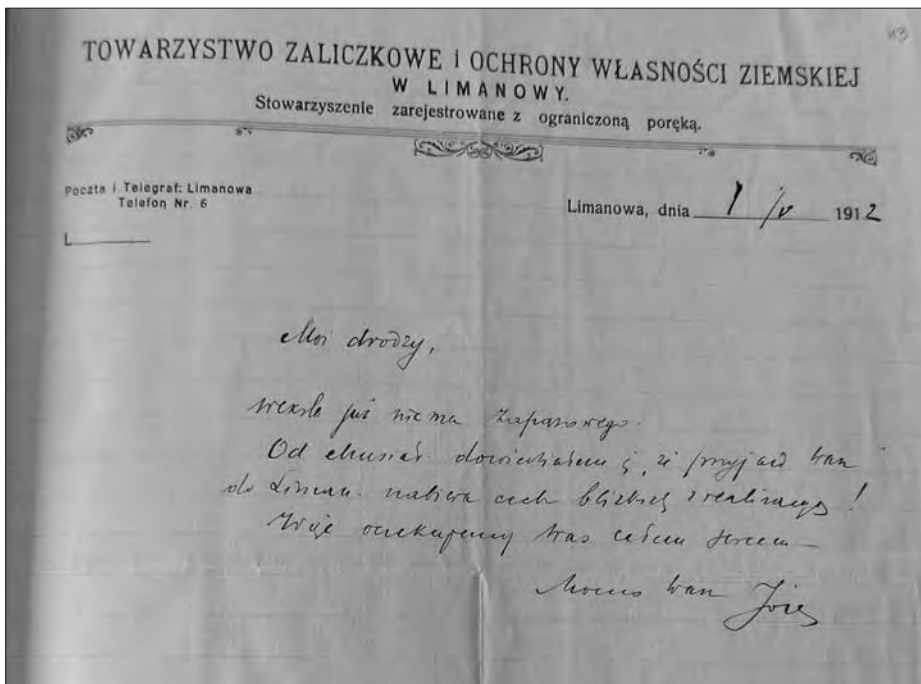 43
TOWARZYSTWO ZALICZKOWE i OCHRONY WŁASNOŚCI ZIEMSKIEJ
W LIMANOWY.
Stowarzyszenie zarejestrowane z ograniczoną poręką.
Poczta i Telegraf: Limanowa
Telefon Nr. 6
L
Limanowa, dnia 1/V 1912
Moi drodzy,
weksla już niema zapasowego.
Od dowiedziałem ś, że przyjazd Wasz
do Liman. nabiera cech bliskiej !
Więc oczekujemy Was całem sercem
Wasz Józef